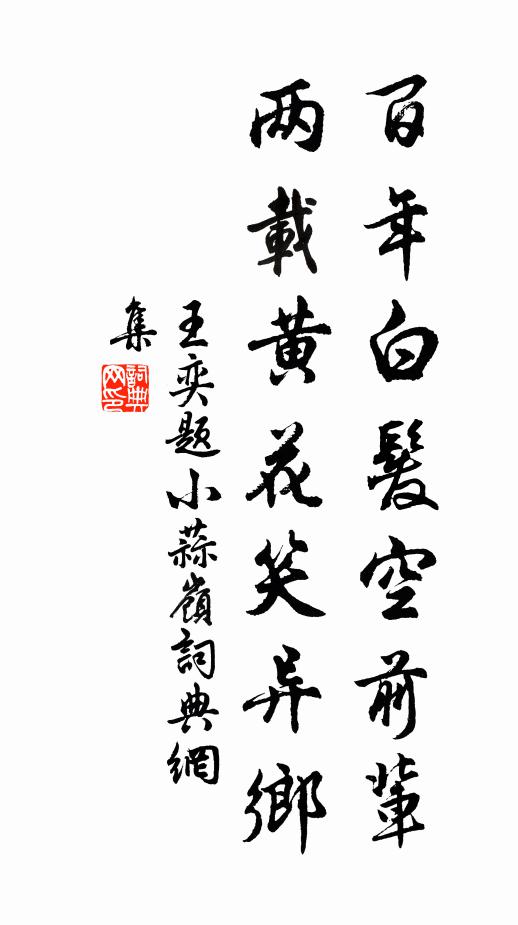 百年白髮空前輩
两載黄花笑异鄉
王奕題小蒜嶺詞典網
集
詞典
网印